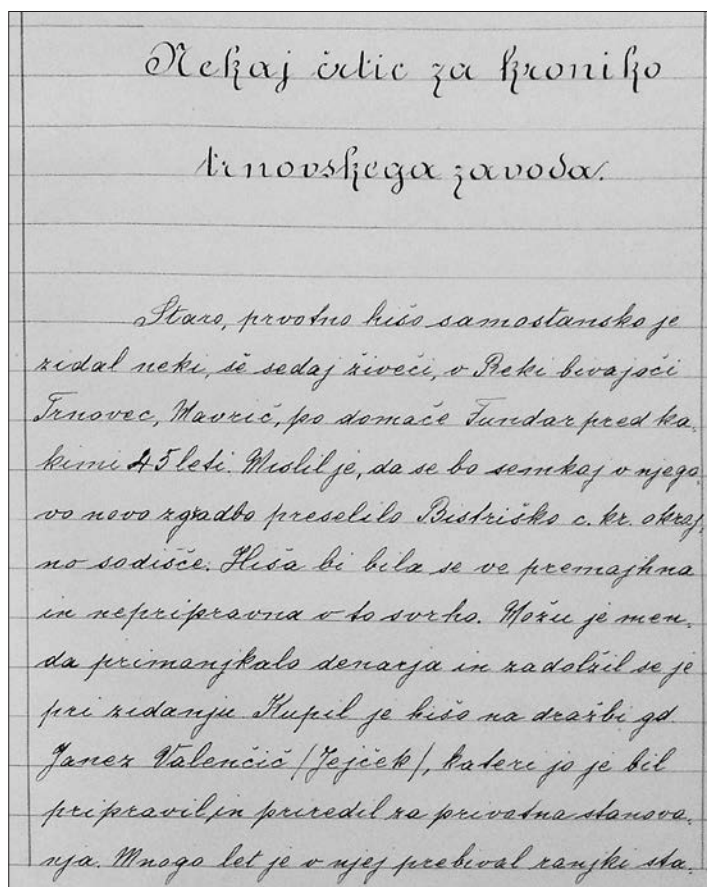 Nekaj črtic za kroniko
trnovskega zavoda.
Staro, prvotno hišo samostansko je
zidal neki, še sedaj živeči, v Reki bivajoči
Trnovec, Mavrič, po domače Fundar pred ka-
kimi 45 leti. Mislil je, da se bo semkaj v njego-
vo novo zgradbo preselilo Bistriško c. kr. okraj-
no sodišče. Hiša bi bila se ve premajhna
in nepripravna v to svrho. Možu je men-
da primanjkalo denarja in zadolžil se je
pri zidanju. Kupil je hišo na dražbi gd.
Janez Valenčič (Jejček), kateri jo je bil
pripravil in priredil za privatna stanova-
nja. Mnogo let je v njej prebival ranjki sta-